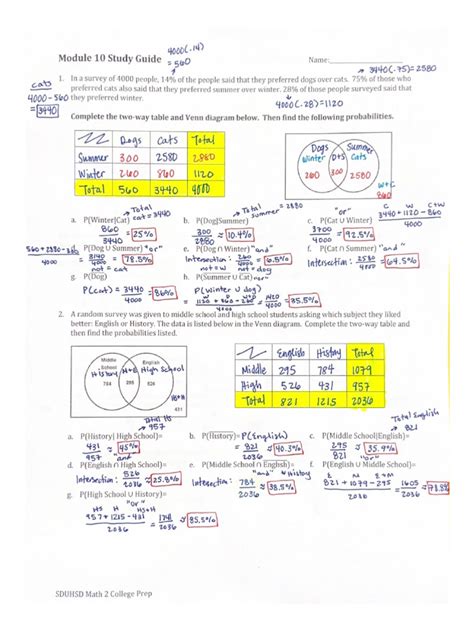 4000(.14)
= 560
Module 10 Study Guide
Name:
→ 3440(.75)= 2580
1. In a survey of 4000 people, 14% of the people said that they preferred dogs over cats. 75% of those who
preferred cats also said that they preferred summer over winter. 28% of those people surveyed said that
they preferred winter.
cats
4000 - 560
= 3440
4000(.28)= 1120
Complete the two-way table and Venn diagram below. Then find the following probabilities.
Dogs Cats Total
Summer 300 2580 2880
Winter 260 860 1120
Total 560 3440 4000
Dogs Summer
Winter D+S Cats
260 300 2580
W+C
860
a. P(Winter|Cat) → Total cat = 3440
860/3440 = 25%
b. P(Dog|Summer) → Total Summer = 2880
300/2880 = 10.4%
c. P(Cat ∪ Winter) "or"
C W C+W
3440+1120-860
4000
3700/4000 = 92.5%
d. P(Dog ∪ Summer) "or"
3140/4000 = 78.5%
e. P(Dog ∩ Winter) "and"
Intersection: 260/4000 = 6.5%
f. P(Cat ∩ Summer) "and"
Intersection: 2580/4000 = 64.5%
not = cat
not = w not = dog
g. P(Dog)
P(cat) = 3440/4000 = 86%
h. P(Summer ∪ Cat) "or"
P(winter ∪ dog)
= 35.5%
2. A random survey was given to middle school and high school students asking which subject they liked
better: English or History. The data is listed below in the Venn diagram. Complete the two-way table and
then find the probabilities listed.
Middle School English
History M+E High School
784 295 526
H+H
431
English History Total
Middle 295 784 1079
High 526 431 957
Total 821 1215 2036
Total HS
→ 957
Total English
→ 821
a. P(History| High School)=
431/957 = 45%
b. P(History)= P(English)
821/2036 = 40.3%
c. P(Middle School|English)=
295/821 = 35.9%
d. P(English ∩ High School)= "and"
Intersection: 526/2036 = 25.8%
e. P(Middle School ∩ English)=
"and" History
Intersection: 784/2036 = 38.5%
f. P(English ∪ Middle School)=
E M "or" E+M
821 + 1079 - 295 = 1605
2036 2036
= 78.8%
g. P(High School ∪ History)=
HS "or" H HS+H
957 + 1215 - 431
2036
= 85.5%
SDUHSD Math 2 College Prep